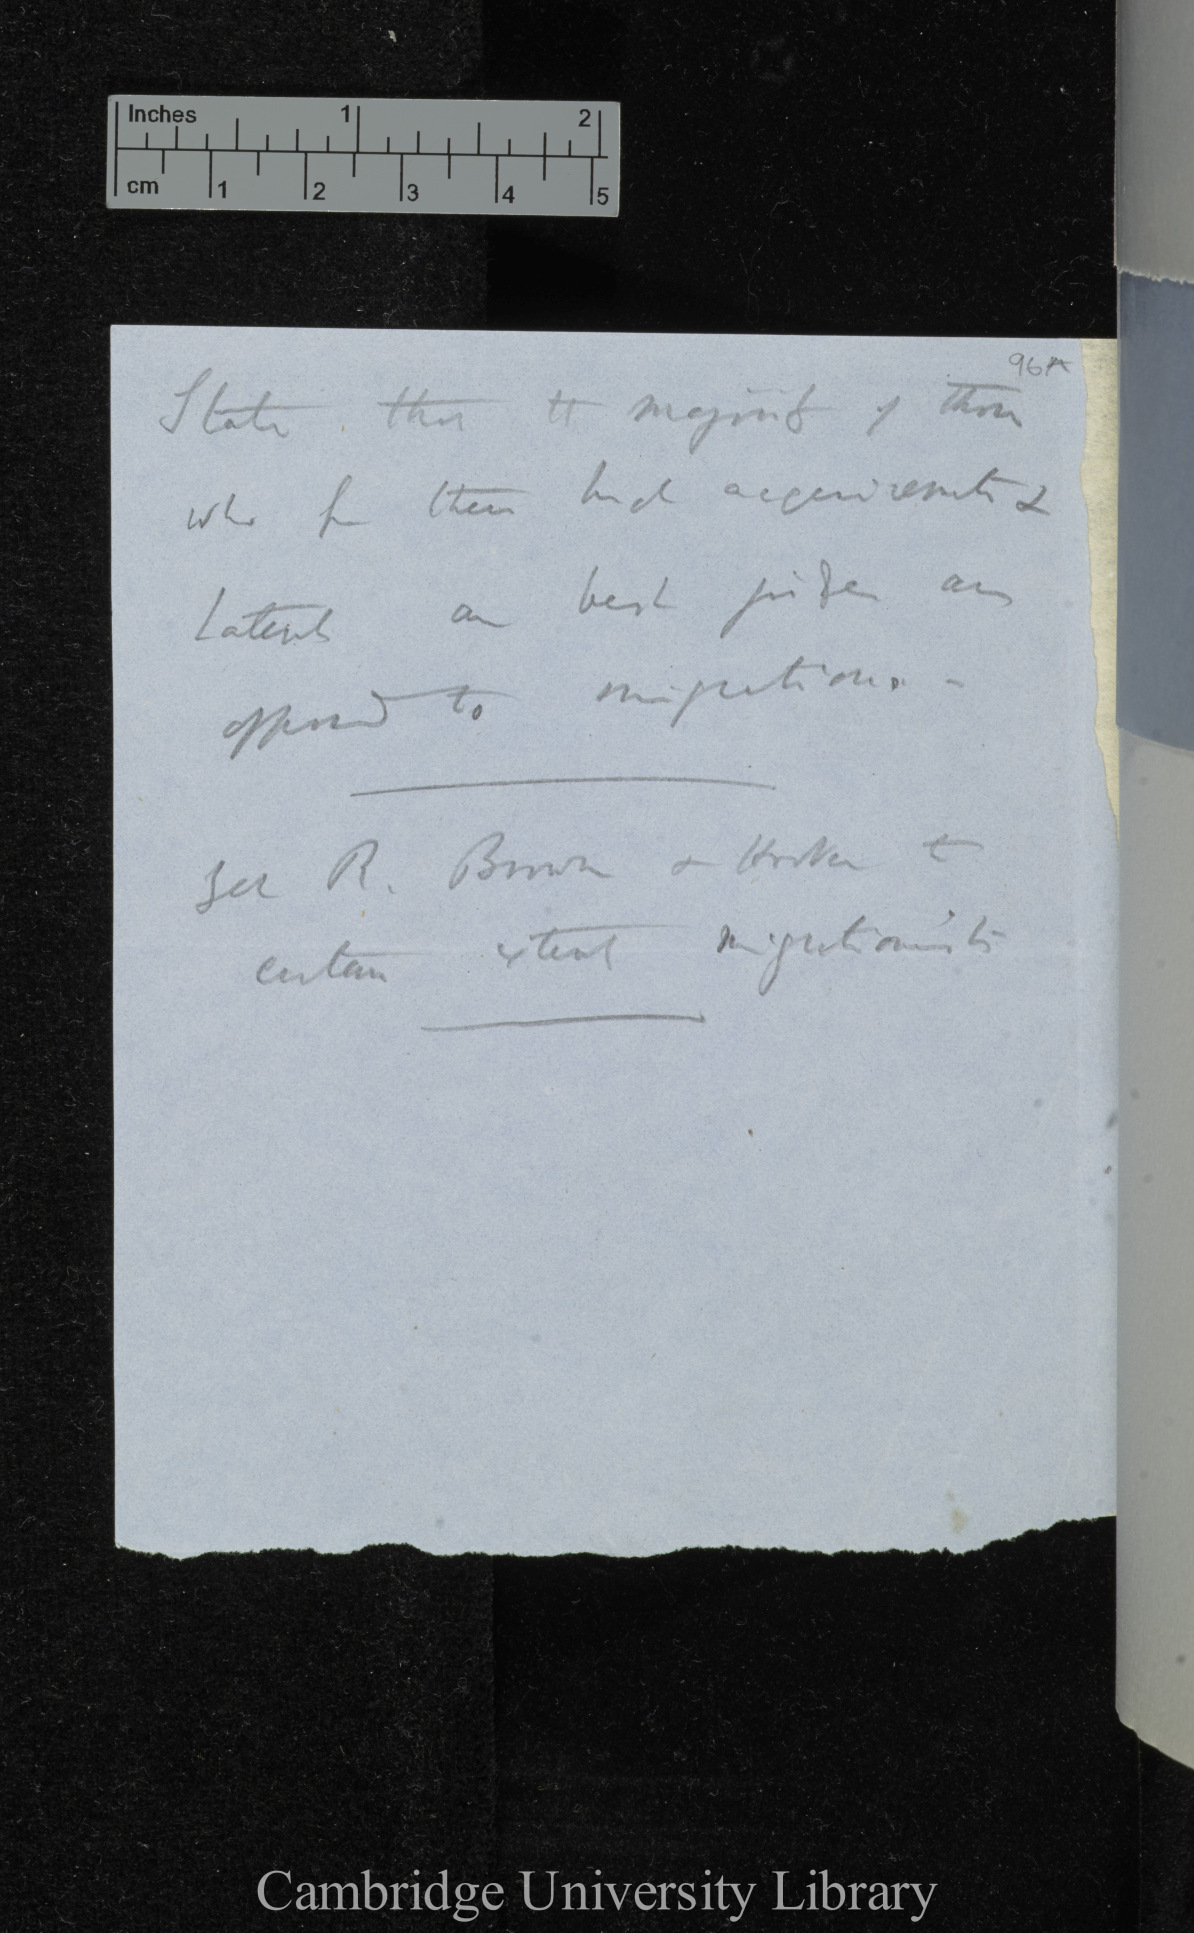 Inches 1 2
cm 1 2 3 4 5
96A
State that the majority of those
who from their high acquirements &
talents are best judges are
opposed to migration. –
Yet R. Brown & Hooker to
certain extent migrationists
Cambridge University Library